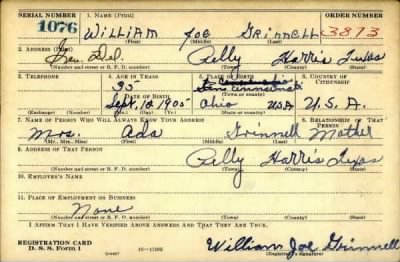 SERIAL NUMBER 1. NAME (Print) ORDER NUMBER
1076 WILLIAM JOE GRINNELL 3873
(First) (Middle) (Last)
2. ADDRESS (Print)
Gen. Del. Pelly Harris Texas
(Number and street or R. F. D. number) (Town) (County) (State)
3. TELEPHONE 4. AGE IN YEARS 5. PLACE OF BIRTH 6. COUNTRY OF CITIZENSHIP
35 Cincinnati
DATE OF BIRTH (Town or county)
Sept. 10 1905 Ohio USA U.S.A.
(Exchange) (Number) (Mo.) (Day) (Yr.) (State or country)
7. NAME OF PERSON WHO WILL ALWAYS KNOW YOUR ADDRESS 8. RELATIONSHIP OF THAT PERSON
Mrs. Ada Grinnell Mother
(Mr., Mrs., Miss) (First) (Middle) (Last)
9. ADDRESS OF THAT PERSON
Pelly Harris Texas
(Number and street or R. F. D. number) (Town) (County) (State)
10. EMPLOYER'S NAME
11. PLACE OF EMPLOYMENT OR BUSINESS
None
(Number and street or R. F. D. number) (Town) (County) (State)
I AFFIRM THAT I HAVE VERIFIED ABOVE ANSWERS AND THAT THEY ARE TRUE.
REGISTRATION CARD
D. S. S. Form 1 (over) William Joe Grinnell
(Registrant's signature)